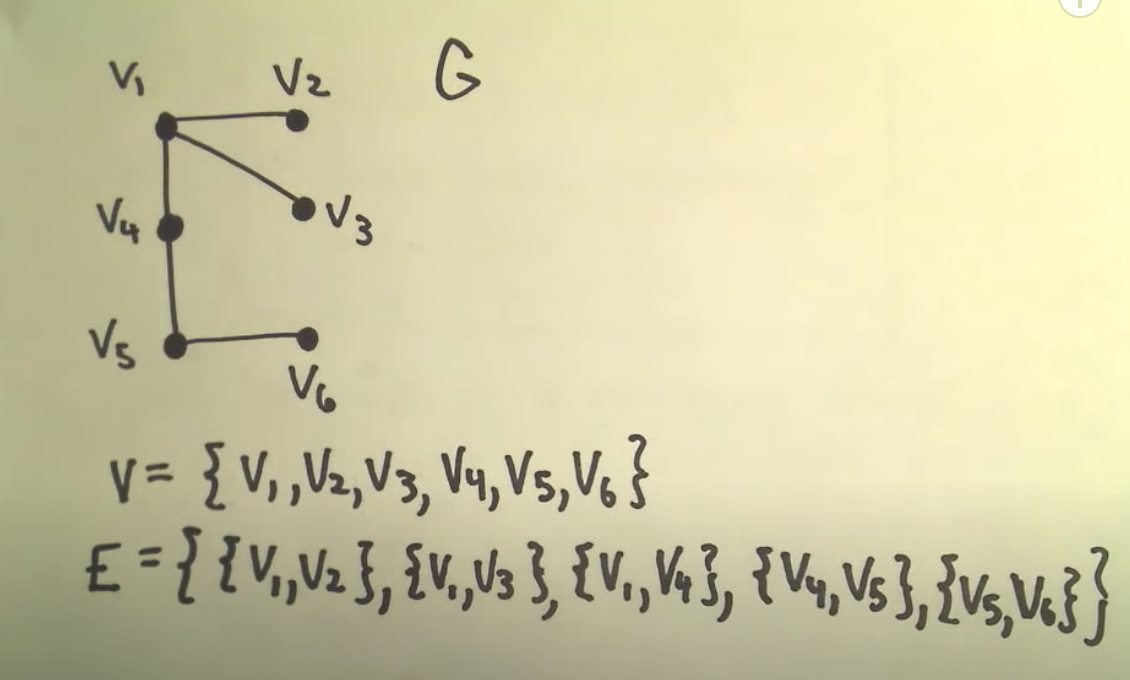 V₁ V₂ G
V₄ V₃
V₅
V₆
V = { V₁, V₂, V₃, V₄, V₅, V₆ }
E = { { V₁, V₂ }, { V₁, V₃ }, { V₁, V₄ }, { V₄, V₅ }, { V₅, V₆ } }